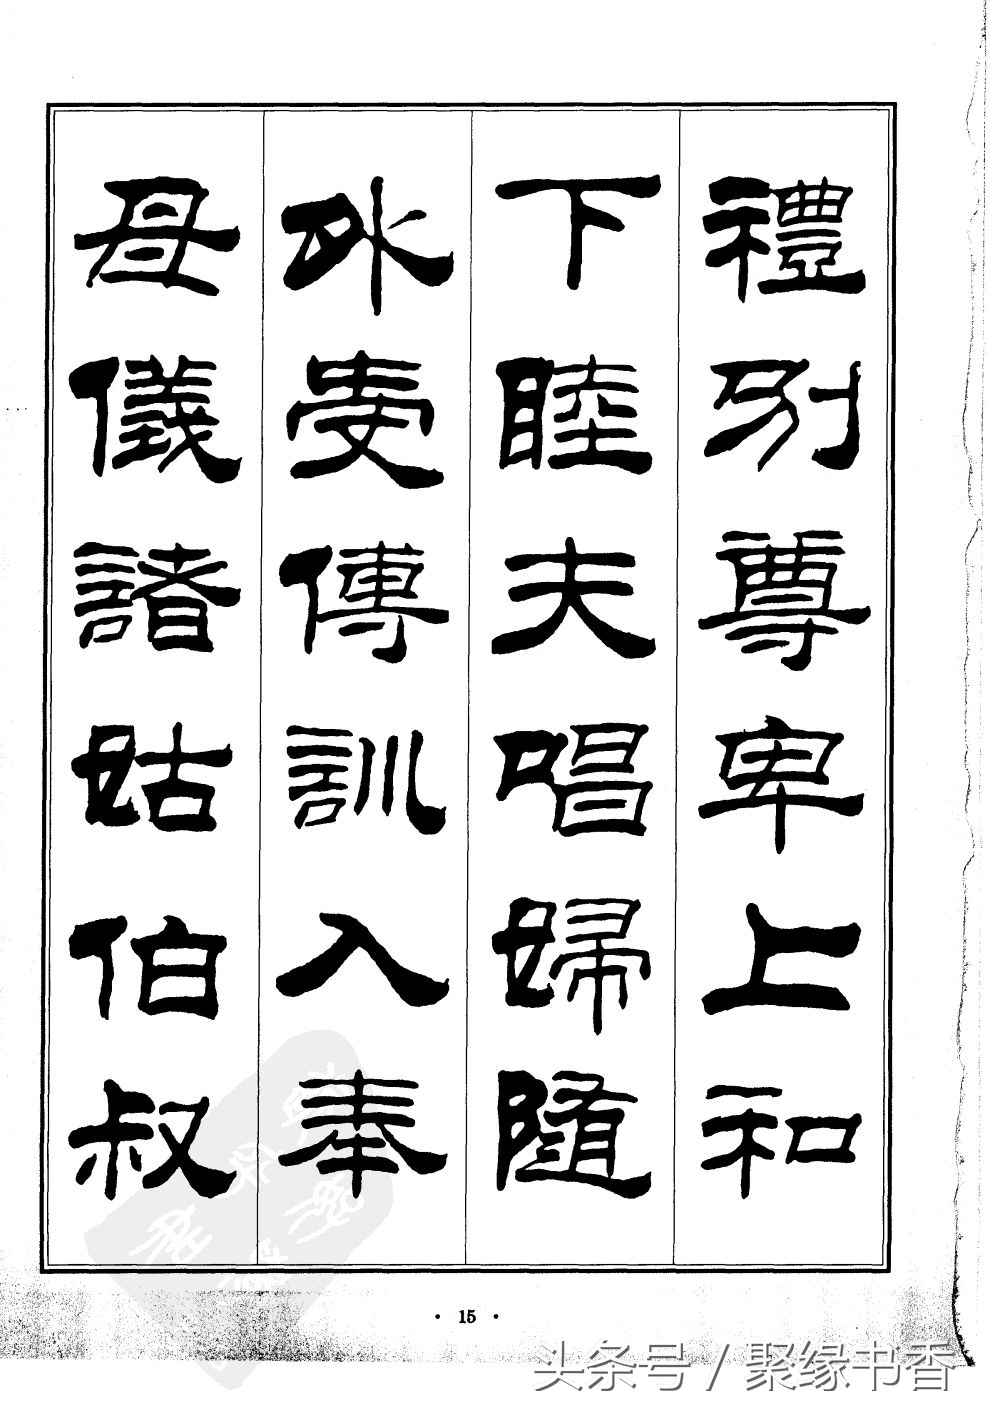 禮別尊卑上和
下睦夫唱婦隨
外受傅訓入奉
母儀諸姑伯叔
· 15 ·
头条号 / 聚缘书香